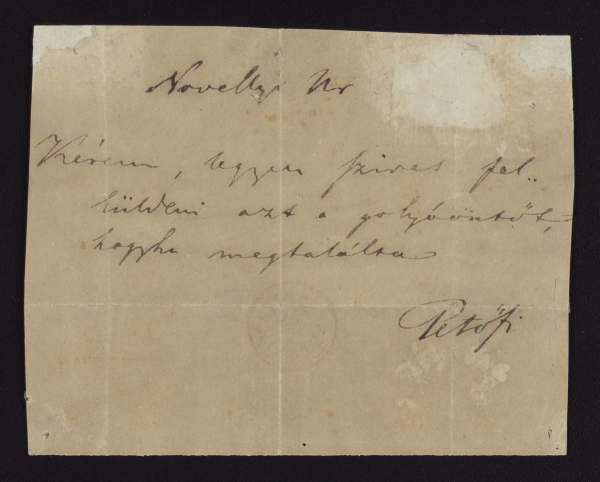 Novelly Ur
Kérem, legyen szives fel..
küldeni azt a golyóöntőt,
hogyha megtalálta
Petőfi